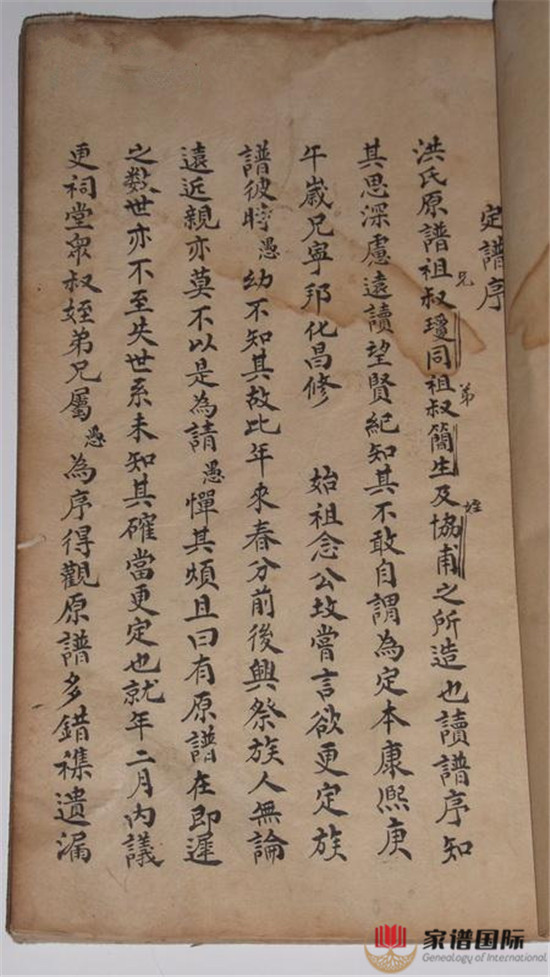 定譜序
洪氏原譜祖叔兄瓊同祖叔弟簡生及姪協甫之所造也讀譜序知
其思深慮遠讀望賢紀知其不敢自謂為定本康熙庚
午歲兄寧邦化昌修 始祖念公坟嘗言欲更定族
譜彼時愚幼不知其故比年來春分前後興祭族人無論
遠近親亦莫不以是為請愚憚其煩且曰有原譜在即遲
之数世亦不至失世系未知其確當更定也就年二月內議
更祠堂眾叔姪弟兄屬愚為序得觀原譜多錯襍遺漏
家谱国际
Genealogy of International